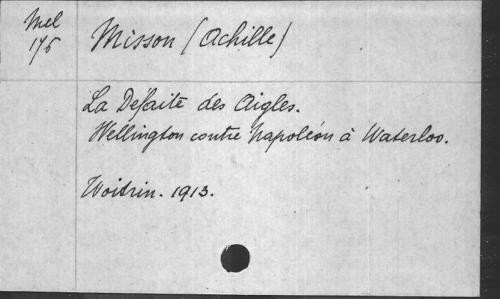 Mel
175
Misson (Achille)
La Défaite des Aigles.
Wellington contre Napoléon à Waterloo.
Woitrin. 1913.